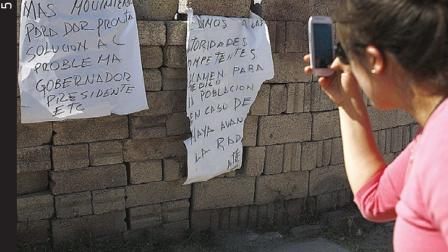 MAS MOVIMIENT
PORA DOR PRONTA
SOLUCION A L
PROBLEMA
GOBERNADOR
PRESIDENTE
ETC
A LAS
TORIDADES
OMPETENTES
LLAMEN PARA
POBLACION
EN CASO DE
HAYA AVAN
LA RAD
5